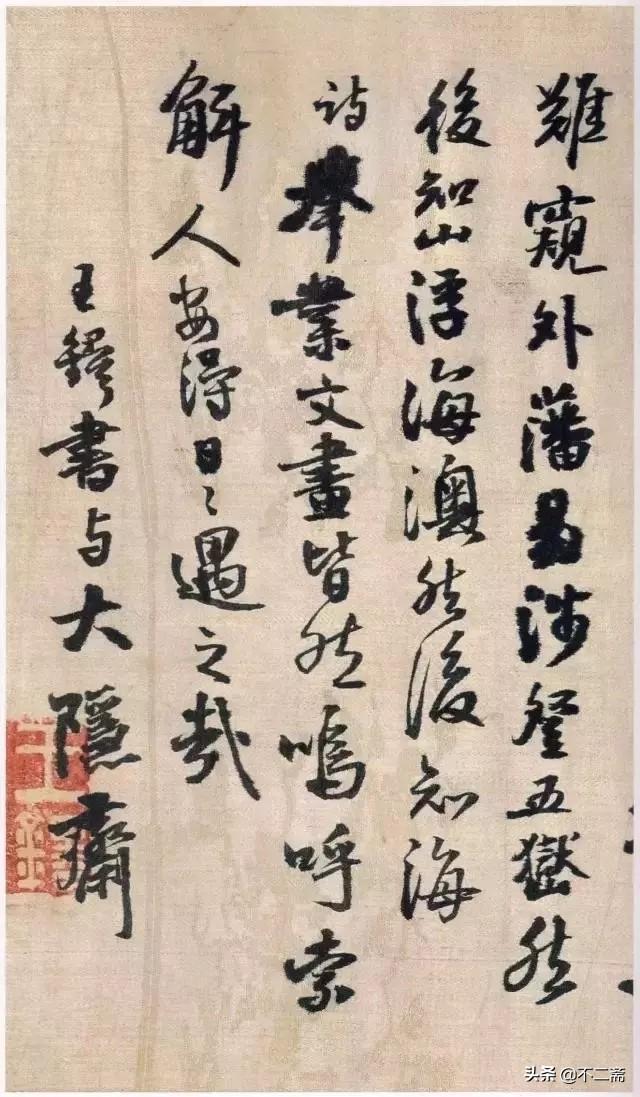 難窺外藩易涉登五嶽然
後知山浮海澳然後知海
詩舉業文畫皆然嗚呼索
解人安得日〻遇之哉
王鐸書与大隱齋
王鐸
头条 @不二斋